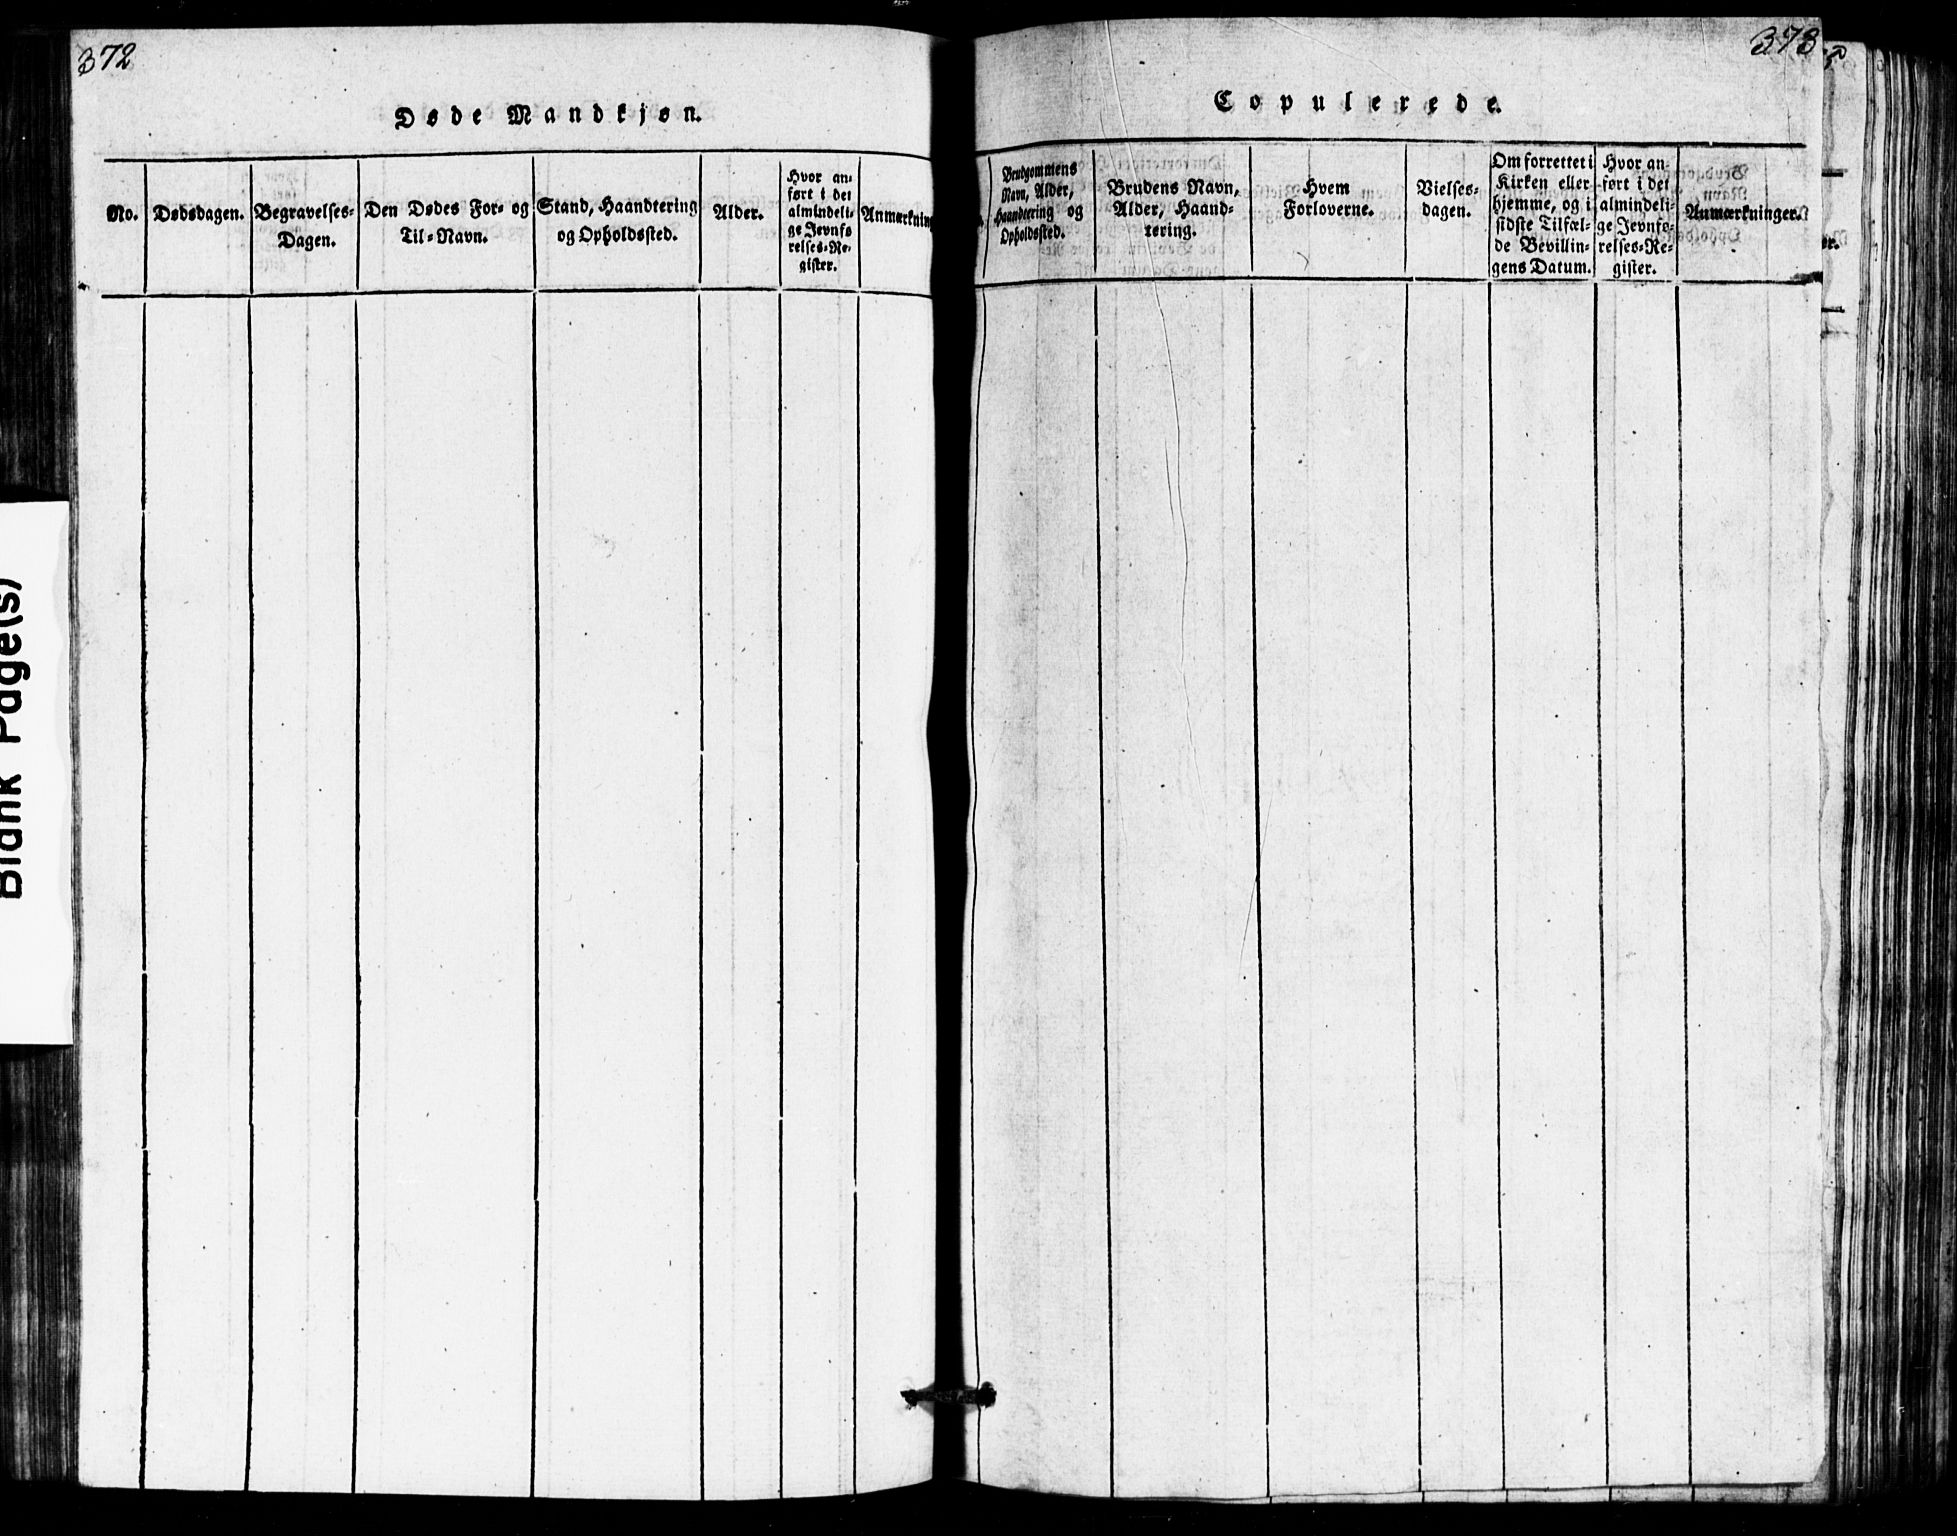 372
Døde Mandkjøn.
No.
Dødsdagen.
Begravelses-
Dagen.
Den Dødes For- og
Til-Navn.
Stand, Haandtering
og Opholdssted.
Alder.
Hvor an-
ført i det
almindeli-
ge Jevnfø
relses-Re-
gister.
Anmærkning
373
Copulerede.
Brudgommens
Navn, Alder,
Haandtering og
Opholdssted.
Brudens Navn,
Alder, Haand-
tering.
Hvem
Forloverne.
Vielses-
dagen.
Om forrettet i
Kirken eller
hjemme, og i
sidste Tilfæl-
de Bevillin-
gens Datum.
Hvor an-
ført i det
almindeli-
ge Jevnfø-
relses-Re-
gister.
Anmærkninger.
Blank Page(s)